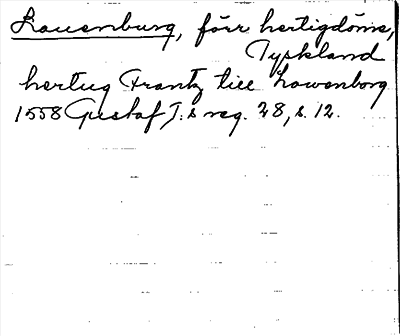 Lauenburg, förr hertigdöme,
Tyskland
hertug Frantz till Lowenborg
1558 Gustaf I.s reg. 28, s. 12.